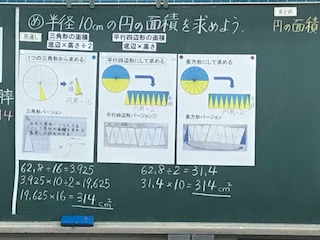 め 半径10cmの円の面積を求めよう。
まとめ
円の面積
見通し
三角形の面積
底辺×高さ÷2
平行四辺形の面積
底辺×高さ
1つの三角形から求める
平行四辺形にして求める
長方形にして求める
円周÷16
円周÷2
円周÷2
三角形バージョン
平行四辺形バージョン①
長方形バージョン
62.8÷16=3.925
3.925×10÷2=19.625
19.625×16=314cm²
62.8÷2=31.4
31.4×10=314cm²